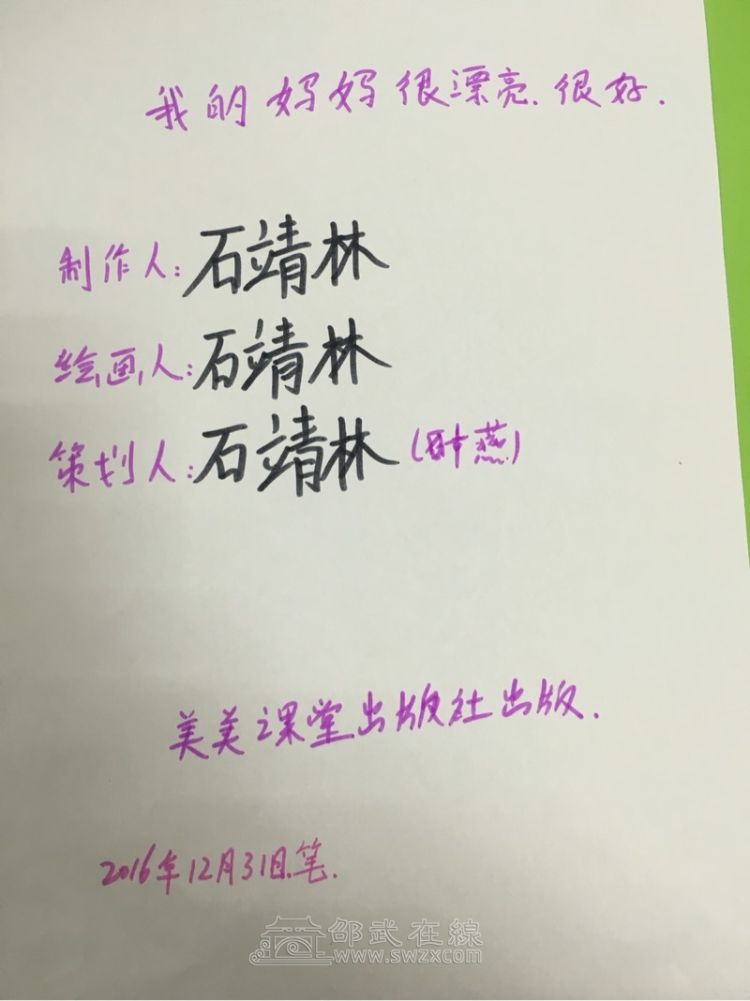 我的妈妈很漂亮.很好.
制作人:石靖林
绘画人:石靖林
策划人:石靖林(叶燕)
美美课堂出版社出版.
2016年12月31日.笔.
邵武在線
www.swzx.com